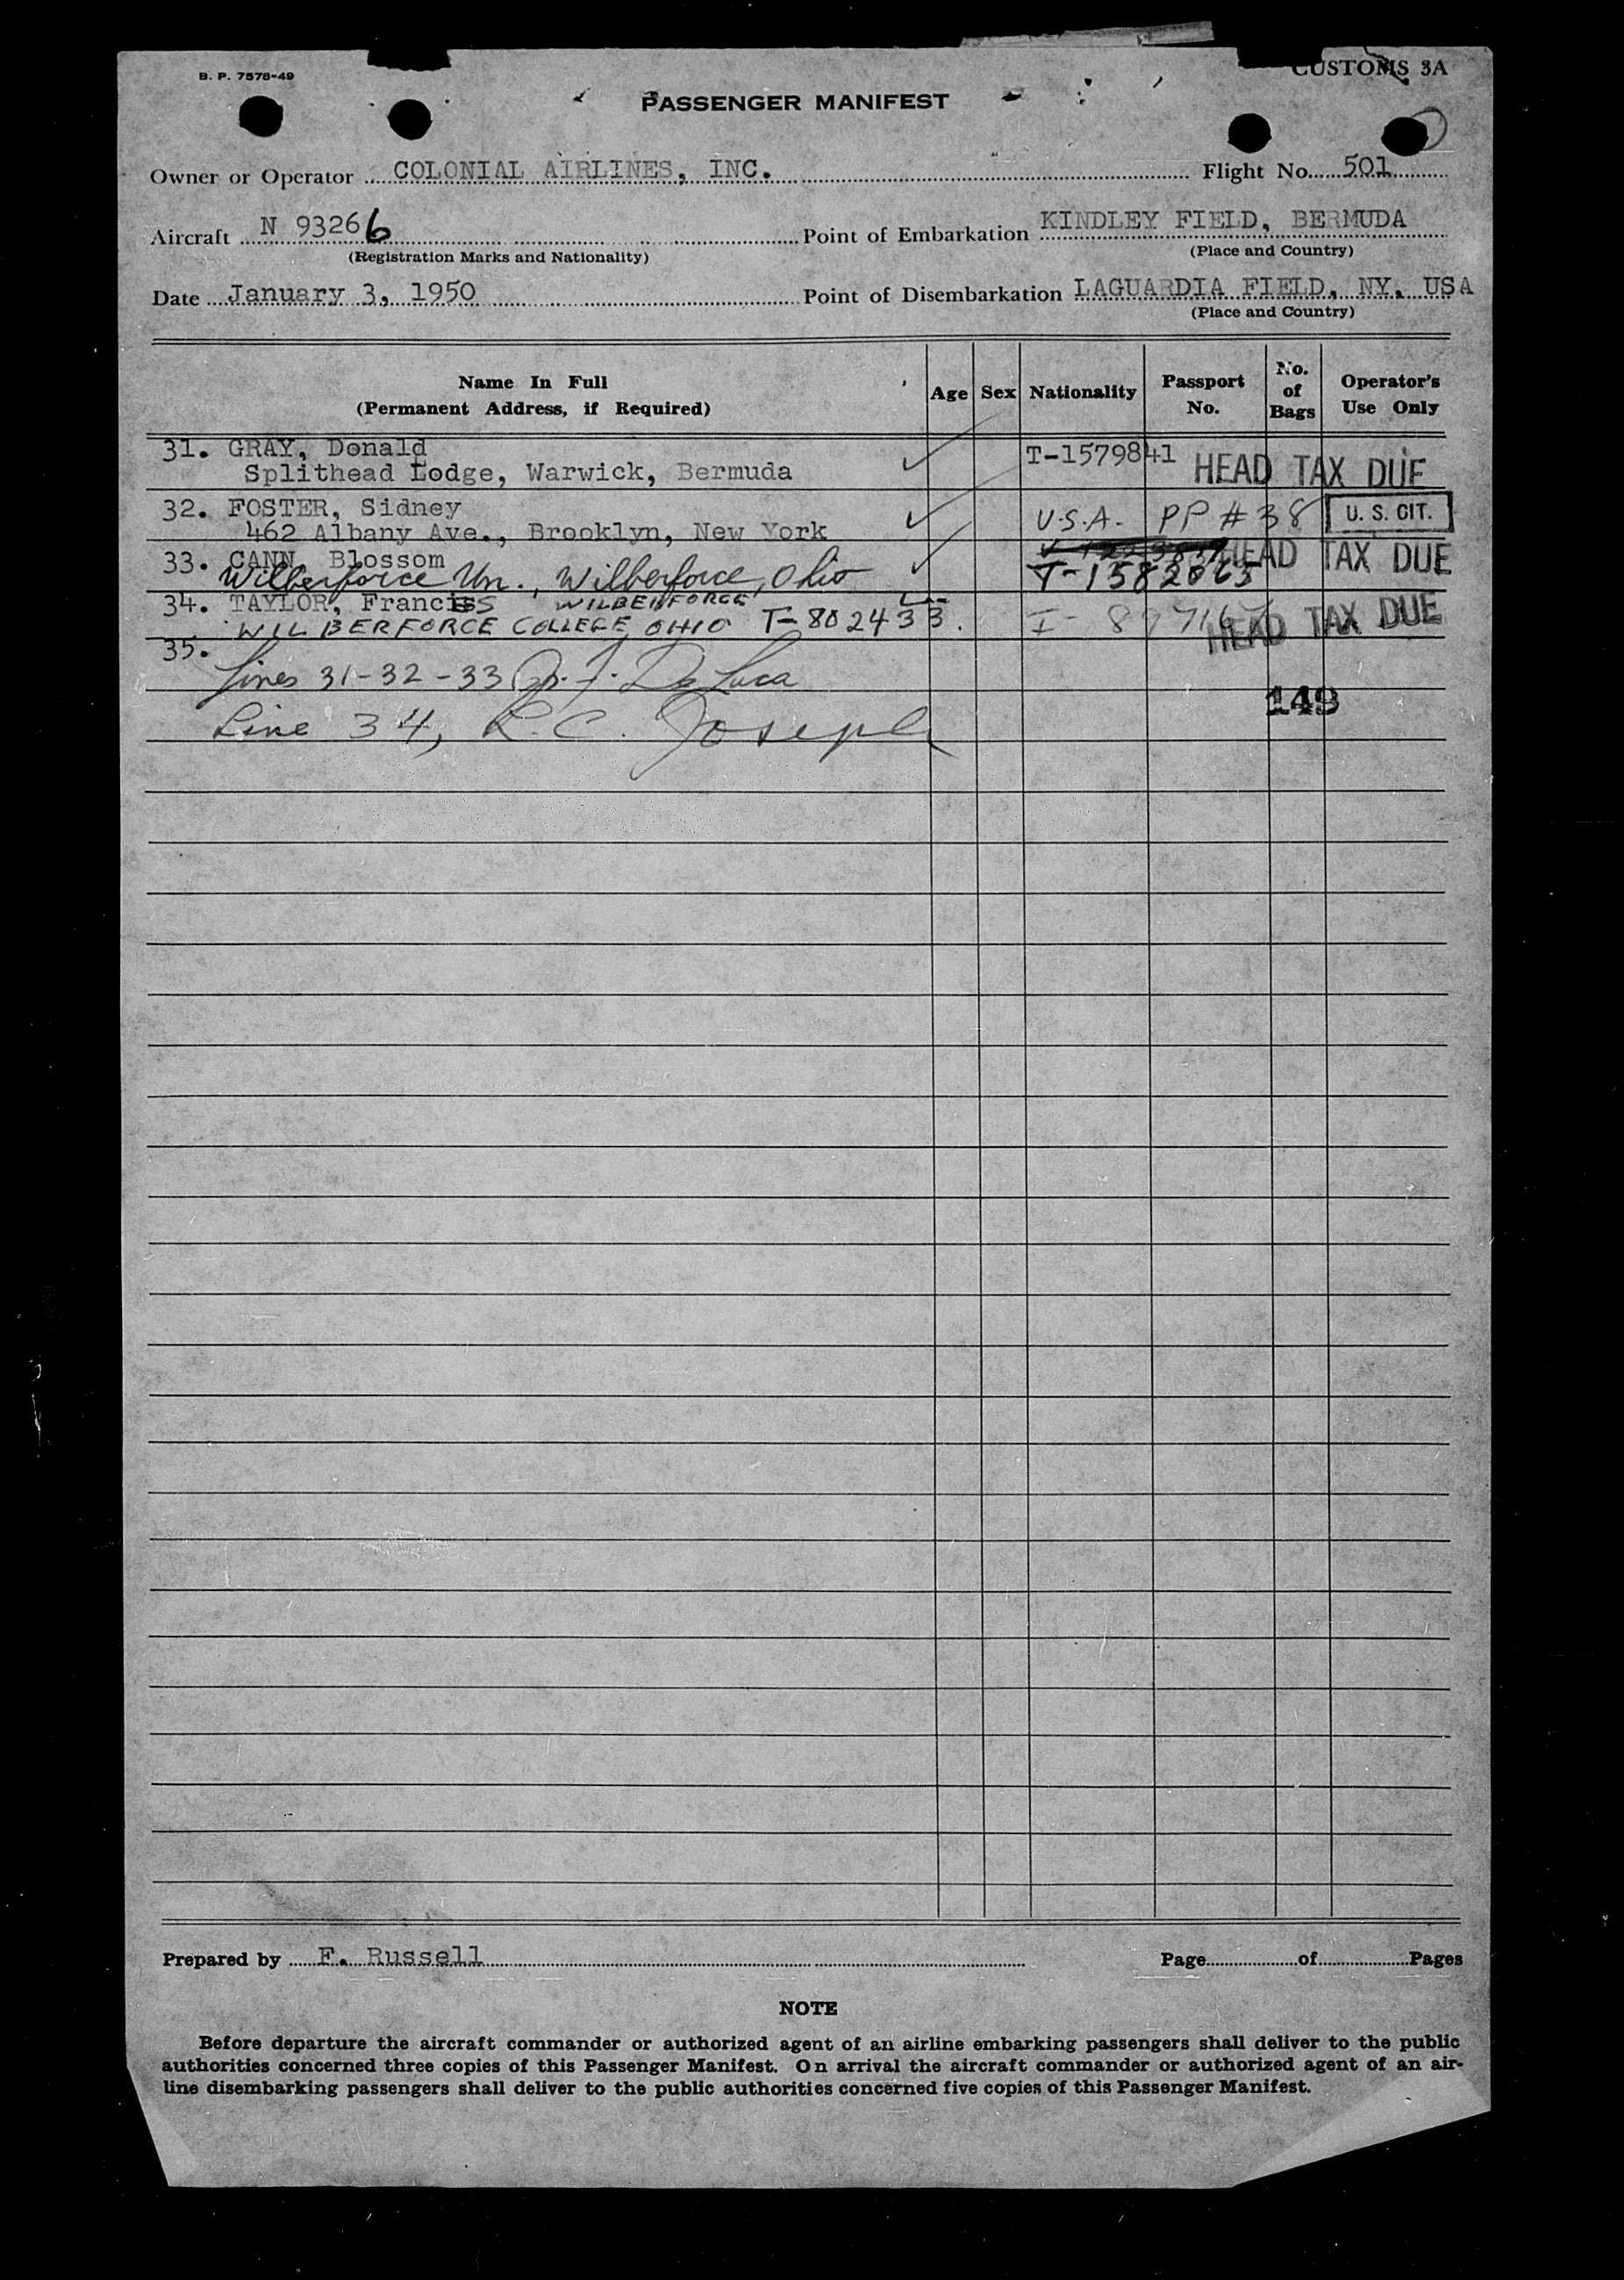 B. P. 7578-49
CUSTOMS 3A
PASSENGER MANIFEST
Owner or Operator COLONIAL AIRLINES, INC. Flight No. 501
Aircraft N 93266 Point of Embarkation KINDLEY FIELD, BERMUDA
(Registration Marks and Nationality) (Place and Country)
Date January 3, 1950 Point of Disembarkation LAGUARDIA FIELD, NY. USA
(Place and Country)
Name In Full (Permanent Address, if Required) Age Sex Nationality Passport No. No. of Bags Operator's Use Only
31. GRAY, Donald T-1579841 HEAD TAX DUE
Splithead Lodge, Warwick, Bermuda
32. FOSTER, Sidney U.S.A. PP # 38 U. S. CIT.
462 Albany Ave., Brooklyn, New York
33. CANN, Blossom HEAD TAX DUE
Wilberforce Un., Wilberforce, Ohio T-1582863
34. TAYLOR, Franciss WILBERFORCE HEAD TAX DUE
WILBERFORCE COLLEGE OHIO T-802433.
35.
Lines 31-32-33 J. De Luca
149
Line 34, R. C. Joseph
Prepared by F. Russell Page of Pages
NOTE
Before departure the aircraft commander or authorized agent of an airline embarking passengers shall deliver to the public
authorities concerned three copies of this Passenger Manifest. On arrival the aircraft commander or authorized agent of an air-
line disembarking passengers shall deliver to the public authorities concerned five copies of this Passenger Manifest.